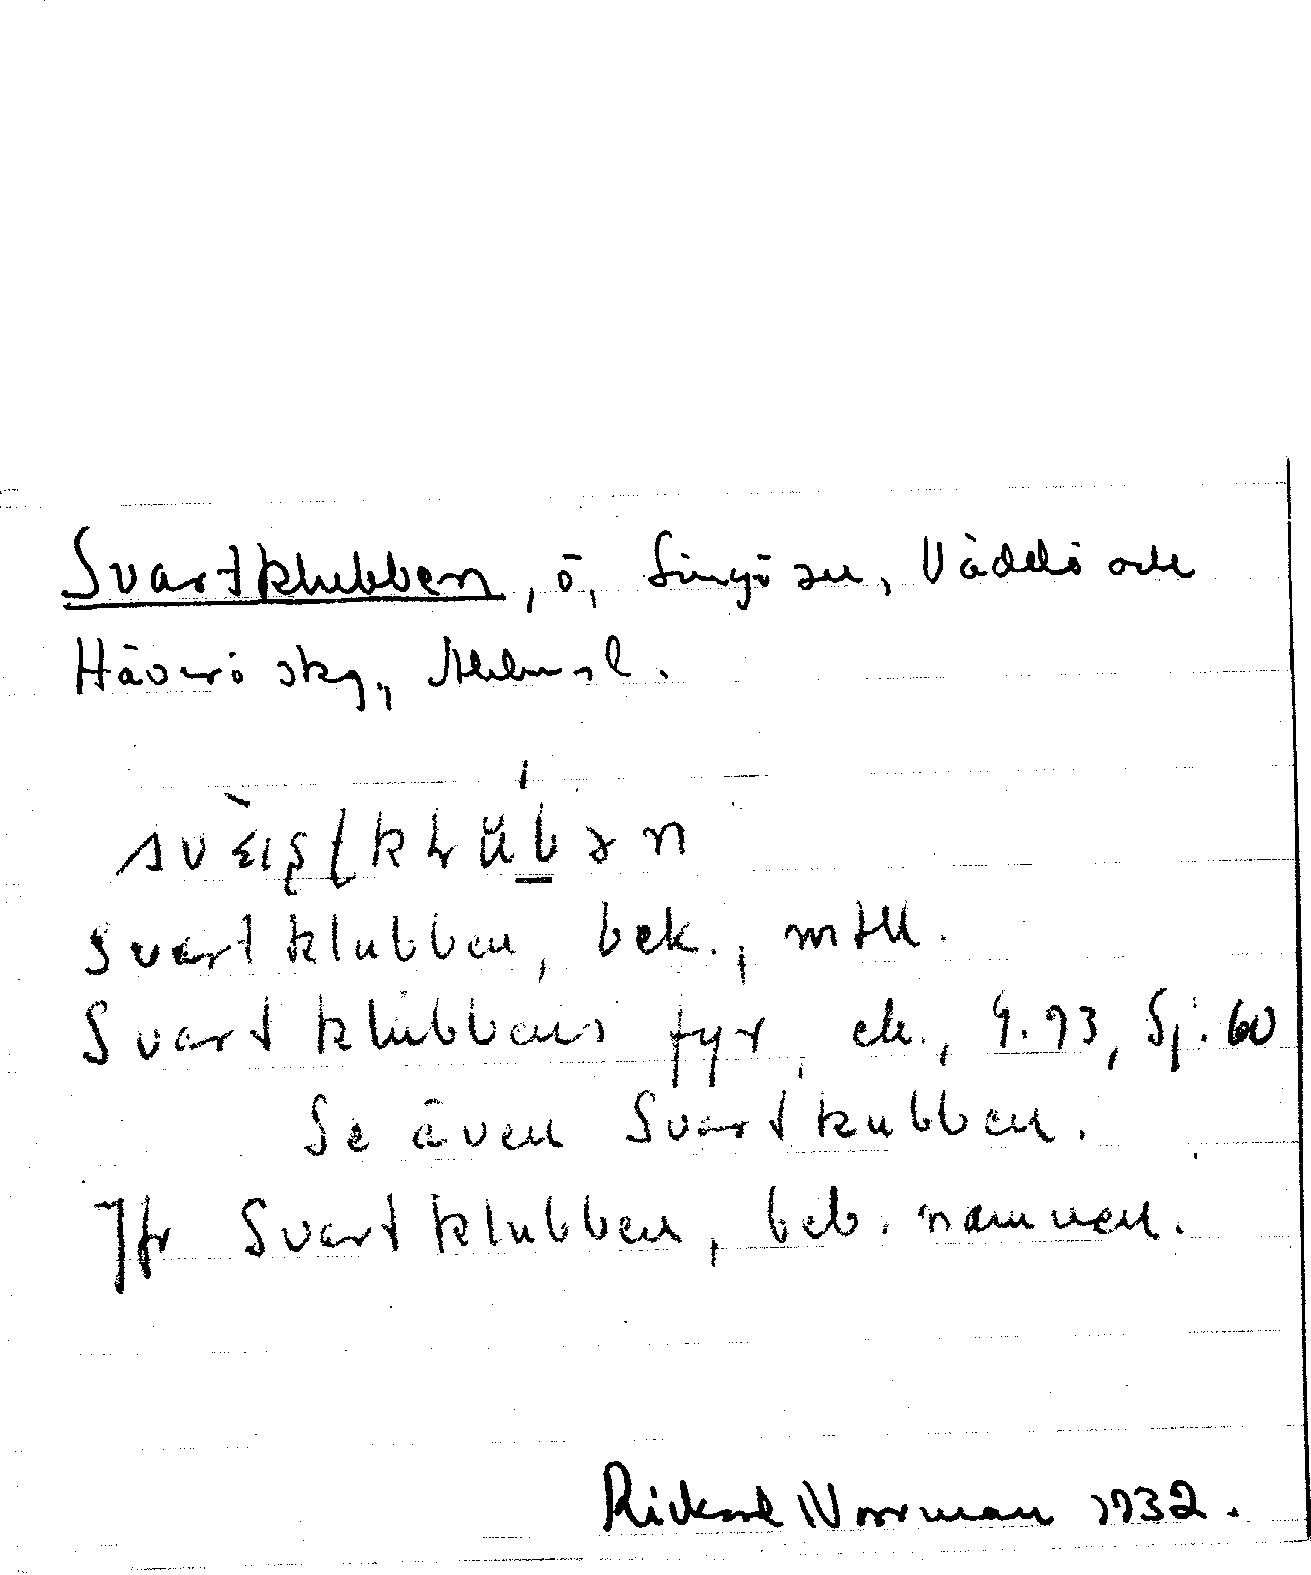 Svartklubben, ö, Singö sn, Väddö och
Häverö skg,, Sthlms l.
Svartklubben, bek., mtll.
Svartklubbens fyr, ek., G.93, Sj. 60
Se även Svartkubben.
Jfr Svartklubben, beb. namnen.
Rickard Norrman 1932.